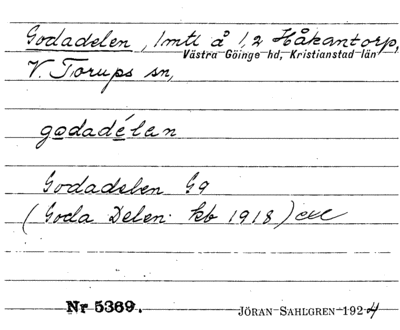 Godadelen, 1 mtl å 1,2 Håkantorp,
Västra Göinge hd, Kristianstad län
V. Torups sn,
godadélen
Godadelen Gg
(Goda Delen kb 1918)
Nr 5369.
JÖRAN SAHLGREN 1924